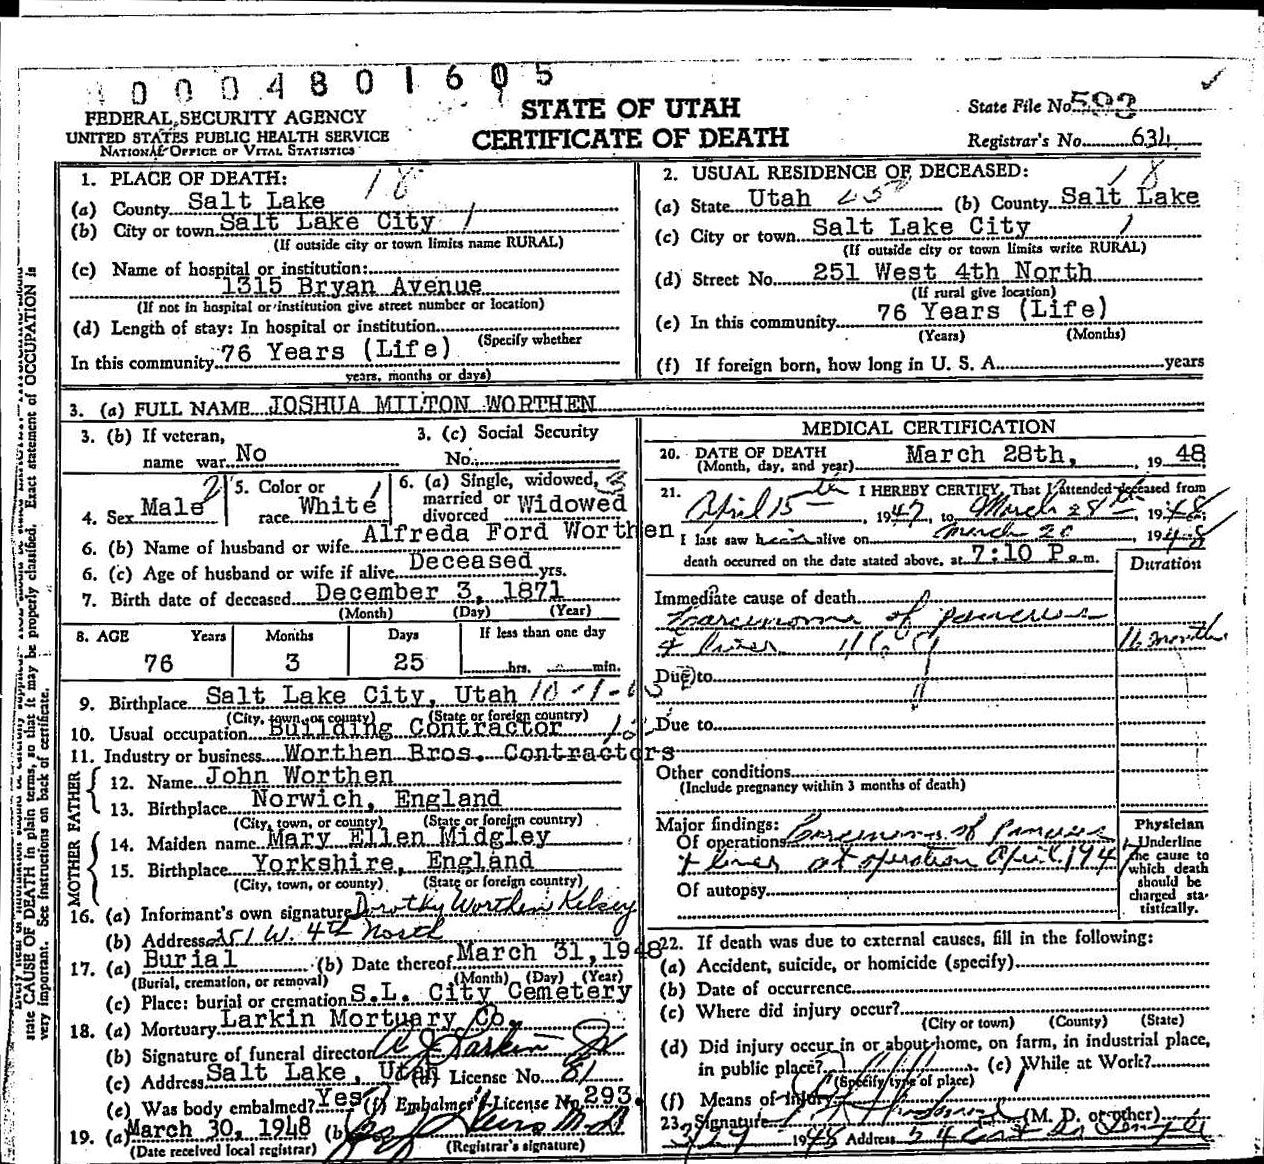 0004801605
FEDERAL SECURITY AGENCY
UNITED STATES PUBLIC HEALTH SERVICE
NATIONAL OFFICE OF VITAL STATISTICS
STATE OF UTAH
CERTIFICATE OF DEATH
State File No. 593
Registrar's No. 634
1. PLACE OF DEATH: 18
(a) County Salt Lake
(b) City or town Salt Lake City 1
(If outside city or town limits name RURAL)
(c) Name of hospital or institution:
1315 Bryan Avenue
(If not in hospital or institution give street number or location)
(d) Length of stay: In hospital or institution
(Specify whether
In this community 76 Years (Life)
years, months or days)
2. USUAL RESIDENCE OF DECEASED: 18
(a) State Utah (b) County Salt Lake
(c) City or town Salt Lake City 1
(If outside city or town limits write RURAL)
(d) Street No. 251 West 4th North
(If rural give location)
(e) In this community 76 Years (Life)
(Years) (Months)
(f) If foreign born, how long in U. S. A. years
3. (a) FULL NAME JOSHUA MILTON WORTHEN
3. (b) If veteran, name war No
3. (c) Social Security No.
4. Sex Male
5. Color or race White
6. (a) Single, widowed, married or divorced Widowed
6. (b) Name of husband or wife Alfreda Ford Worthen
6. (c) Age of husband or wife if alive Deceased yrs.
7. Birth date of deceased December 3, 1871
(Month) (Day) (Year)
8. AGE Years Months Days If less than one day
76 3 25 hrs. min.
9. Birthplace Salt Lake City, Utah
(City, town, or county) (State or foreign country)
10. Usual occupation Building Contractor
11. Industry or business Worthen Bros. Contractors
FATHER
12. Name John Worthen
13. Birthplace Norwich, England
(City, town, or county) (State or foreign country)
MOTHER
14. Maiden name Mary Ellen Midgley
15. Birthplace Yorkshire, England
(City, town, or county) (State or foreign country)
16. (a) Informant's own signature Dorothy Worthen Kelsey
(b) Address 251 W. 4th North
17. (a) Burial (b) Date thereof March 31, 1948
(Burial, cremation, or removal) (Month) (Day) (Year)
(c) Place: burial or cremation S.L. City Cemetery
18. (a) Mortuary Larkin Mortuary Co.
(b) Signature of funeral director
(c) Address Salt Lake, Utah (d) License No. 81
(e) Was body embalmed? Yes (f) Embalmer's License No. 293.
19. (a) March 30, 1948 (b)
(Date received local registrar) (Registrar's signature)
MEDICAL CERTIFICATION
20. DATE OF DEATH
(Month, day, and year) March 28th, , 1948
21. I HEREBY CERTIFY, That I attended deceased from
April 15th, 1947, to March 28th 1948;
I last saw him alive on March 28 1948
death occurred on the date stated above, at 7:10 P.m.
Duration
Immediate cause of death
Carcinoma of pancreas
& liver 11 months
Due to
Due to
Other conditions
(Include pregnancy within 3 months of death)
Major findings:
Of operations Carcinoma of Pancreas
& liver at operation April 1947
Of autopsy
Physician
Underline the cause to which death should be charged statistically.
22. If death was due to external causes, fill in the following:
(a) Accident, suicide, or homicide (specify)
(b) Date of occurrence
(c) Where did injury occur?
(City or town) (County) (State)
(d) Did injury occur in or about home, on farm, in industrial place,
in public place? (e) While at Work?
(Specify type of place)
(f) Means of Injury
23. Signature (M. D. or other)
1948 Address
state CAUSE OF DEATH in plain terms, so that it may be properly classified. Exact statement of OCCUPATION is
very important. See instructions on back of certificate.